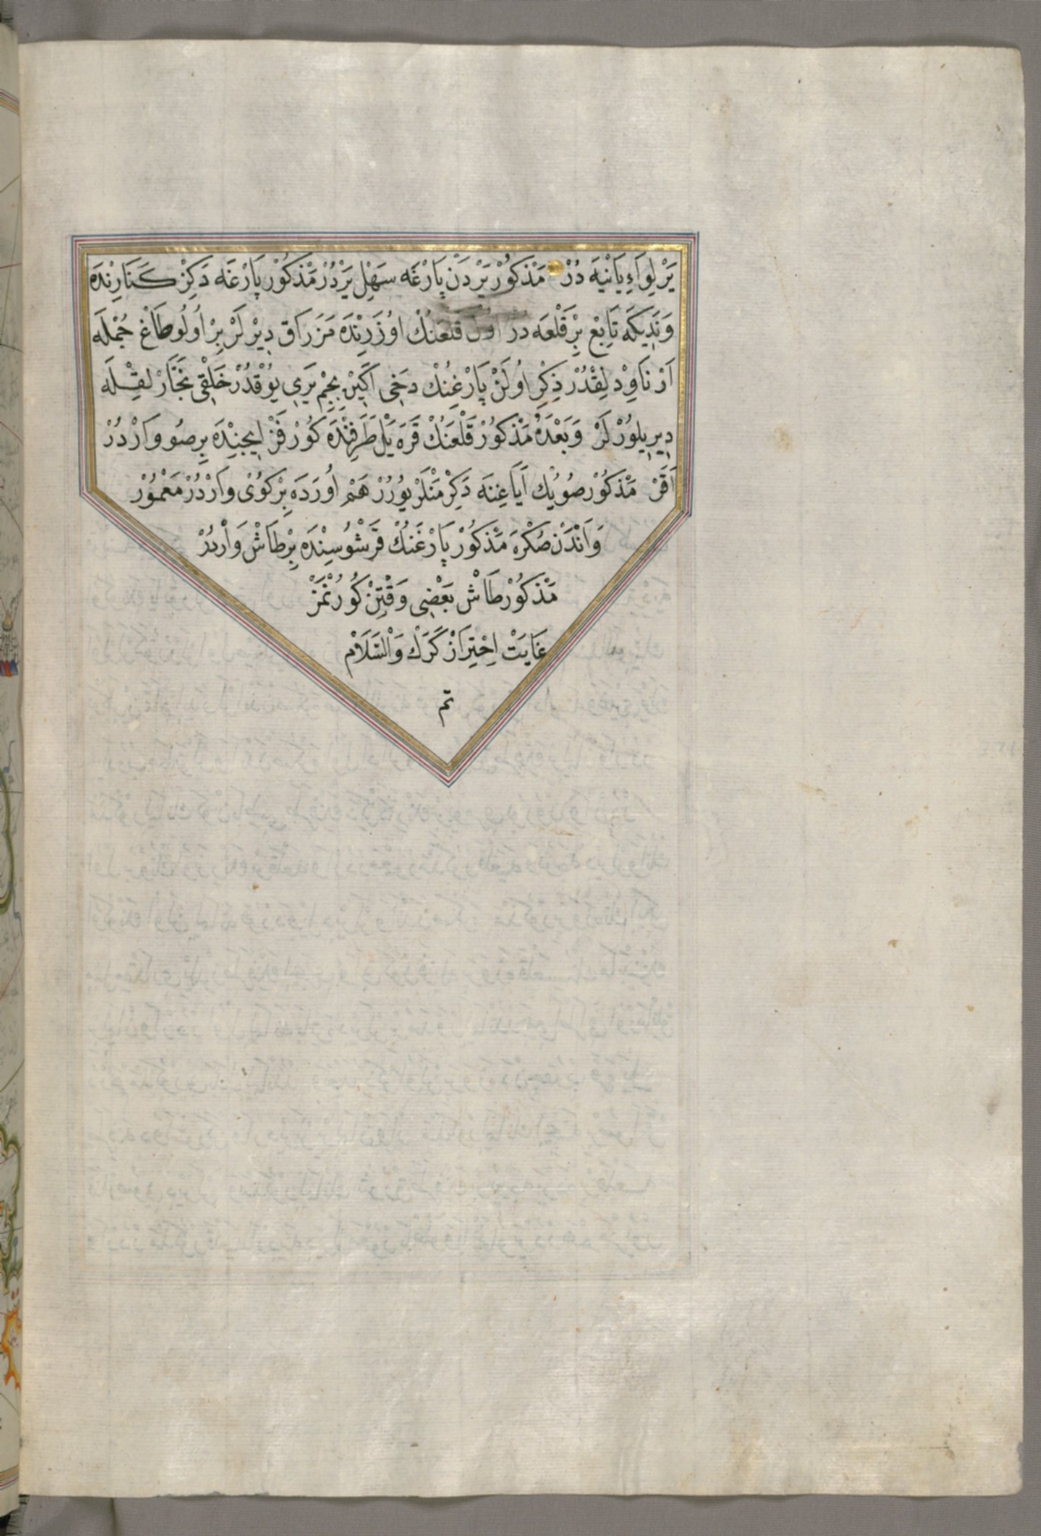 يَرْلِوَاءِ يَانْيَه دُرْ مَذْكُورْ يَرْدَنْ پَارْغَه سَهِلْ يَرْدُرْ مَذْكُورْ پَارْغَه دَكِزْ كَنَارِنْدَه
وَنَدِيكَه تَابِعْ بِرْ قَلْعَه دُرْ اُولْ قَلْعَنُكْ اُوزَرِنْدَه مَزَرَاقْ دِيْرلَرْ بِرْ اُولُو طَاغْ جُمْلَه
اَرْنَاوِدْلِقْدُرْ ذِكْرِ اُولَنْ پَارْغَنُكْ دَخِى اَكِينْ بِجِمْ يَرِى يُوقْدُرْ خَلْقِى نَجَّارْلِقِلَه
دِيرِيلُورْلَرْ وَبَعْدَهُ مَذْكُورْ قَلْعَنُكْ قَرَه يَلْ طَرَفِنْدَه كُورْفَزْ اِيچِنْدَه بِرْصُو وَارْدُرْ
اَقَرْ مَذْكُورْ صُويُكْ اَيَاغِنَه دَكِرْمَنْلَرْ يُورُرْ هَمْ اُورَدَه بِرْكَوُىْ وَارْدُرْ مَعْمُورْ
وَاَنْدَنْ صُكْرَه مَذْكُورْ پَارْغَنُكْ قَرْشُوسِنْدَه بِرْطَاشْ وَارْدُرْ
مَذْكُورْ طَاشْ بَعْضِى وَقْتِنْ كُورُنْمَزْ
غَايَتْ اِحْتِرَازْ كَرَكْ وَالسَّلَامْ
تم